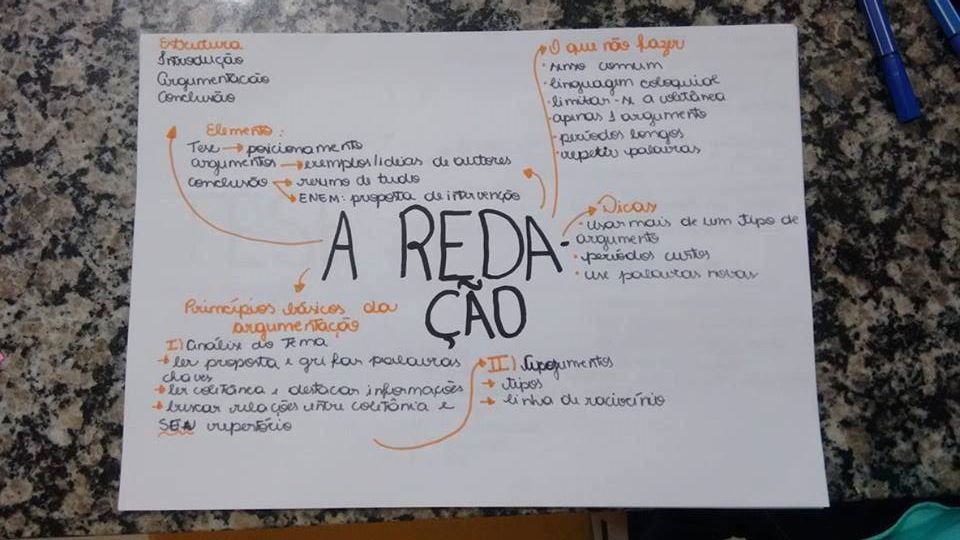 Estrutura
Introdução
Argumentação
Conclusão
Elemento:
Tese → posicionamento
argumentos → exemplos/ideias de autores
conclusão → resumo de tudo
→ ENEM: proposta de intervenção
O que não fazer
· senso comum
· linguagem coloquial
· limitar-se a coletânea
· apenas 1 argumento
· períodos longos
· repetir palavras
Dicas
· usar mais de um tipo de
argumento
· períodos curtos
· use palavras novas
A REDA-
ÇÃO
Princípios básicos da
argumentação
I) Análise do Tema
→ ler proposta e grifar palavras
chaves
→ ler coletânea e destacar informações
→ buscar relações entre coletânia e
SEU repertório
II)
→ tipos
→ linha de raciocínio